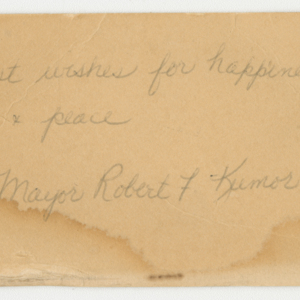 st wishes for happine
& peace
Mayor Robert F Kumor